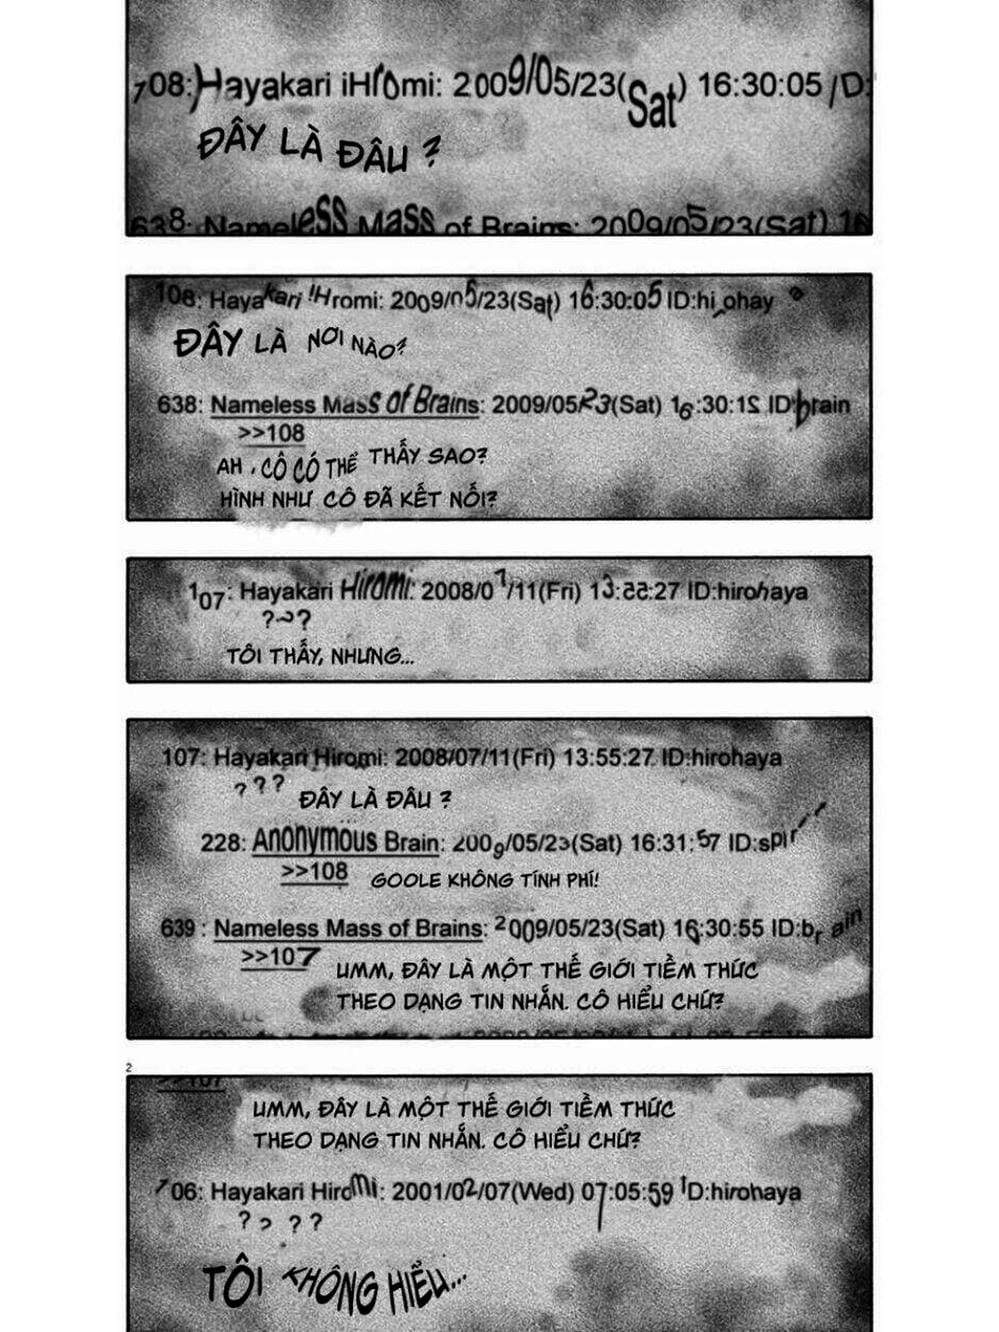 108: Hayakari iHromi: 2009/05/23(Sat) 16:30:05 ID:
ĐÂY LÀ ĐÂU ?
638: Nameless Mass of Brains: 2009/05/23(Sat) 16
108: Hayakari !Hromi: 2009/05/23(Sat) 16:30:05 ID:hi ohay
ĐÂY LÀ NƠI NÀO?
638: Nameless Mass of Brains: 2009/05 23(Sat) 16:30:12 ID:brain
>>108
AH, CÔ CÓ THỂ THẤY SAO?
HÌNH NHƯ CÔ ĐÃ KẾT NỐI?
107: Hayakari Hiromi: 2008/07/11(Fri) 13:55:27 ID:hirohaya
???
TÔI THẤY, NHƯNG...
107: Hayakari Hiromi: 2008/07/11(Fri) 13:55:27 ID:hirohaya
???
ĐÂY LÀ ĐÂU ?
228: Anonymous Brain: 2009/05/23(Sat) 16:31:57 ID:spir
>>108 GOOLE KHÔNG TÍNH PHÍ!
639 : Nameless Mass of Brains: 2009/05/23(Sat) 16:30:55 ID:brain
>>107
UMM, ĐÂY LÀ MỘT THẾ GIỚI TIỀM THỨC
THEO DẠNG TIN NHẮN. CÔ HIỂU CHỨ?
2
>>107
UMM, ĐÂY LÀ MỘT THẾ GIỚI TIỀM THỨC
THEO DẠNG TIN NHẮN. CÔ HIỂU CHỨ?
106: Hayakari Hiromi: 2001/02/07(Wed) 07:05:59 ID:hirohaya
????
TÔI KHÔNG HIỂU...